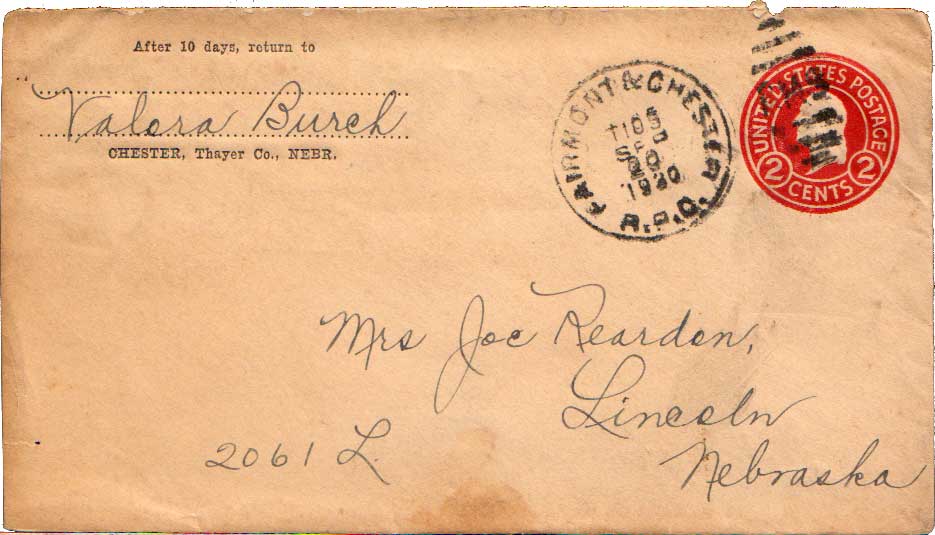 After 10 days, return to
Valera Burch
CHESTER, Thayer Co., NEBR.
FAIRMONT & CHESTER
1920
R.P.O.
UNITED STATES POSTAGE
2 CENTS 2
Mrs Joe Reardon,
Lincoln
2061 L.
Nebraska